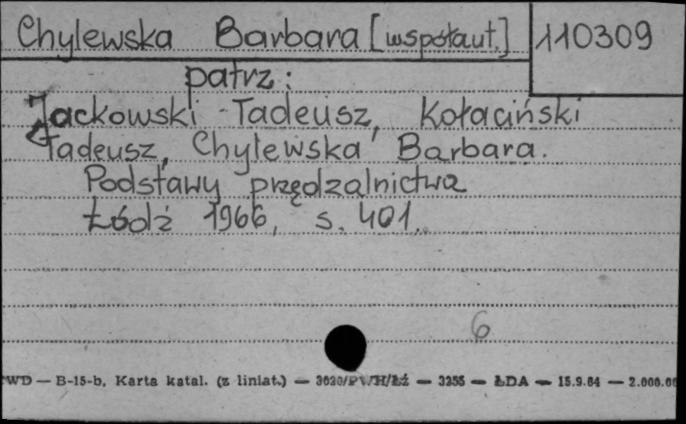 Chylewska Barbara [współaut.] 110309
patrz:
Jackowski Tadeusz, Kołaciński
Tadeusz, Chylewska Barbara.
Podstawy przędzalnictwa
Łódź 1966, s. 401.
6
WD — B-15-b, Karta katal. (z liniat.) — 3620/PWH/Łź — 3255 — ŁDA — 15.9.64 — 2.000.00